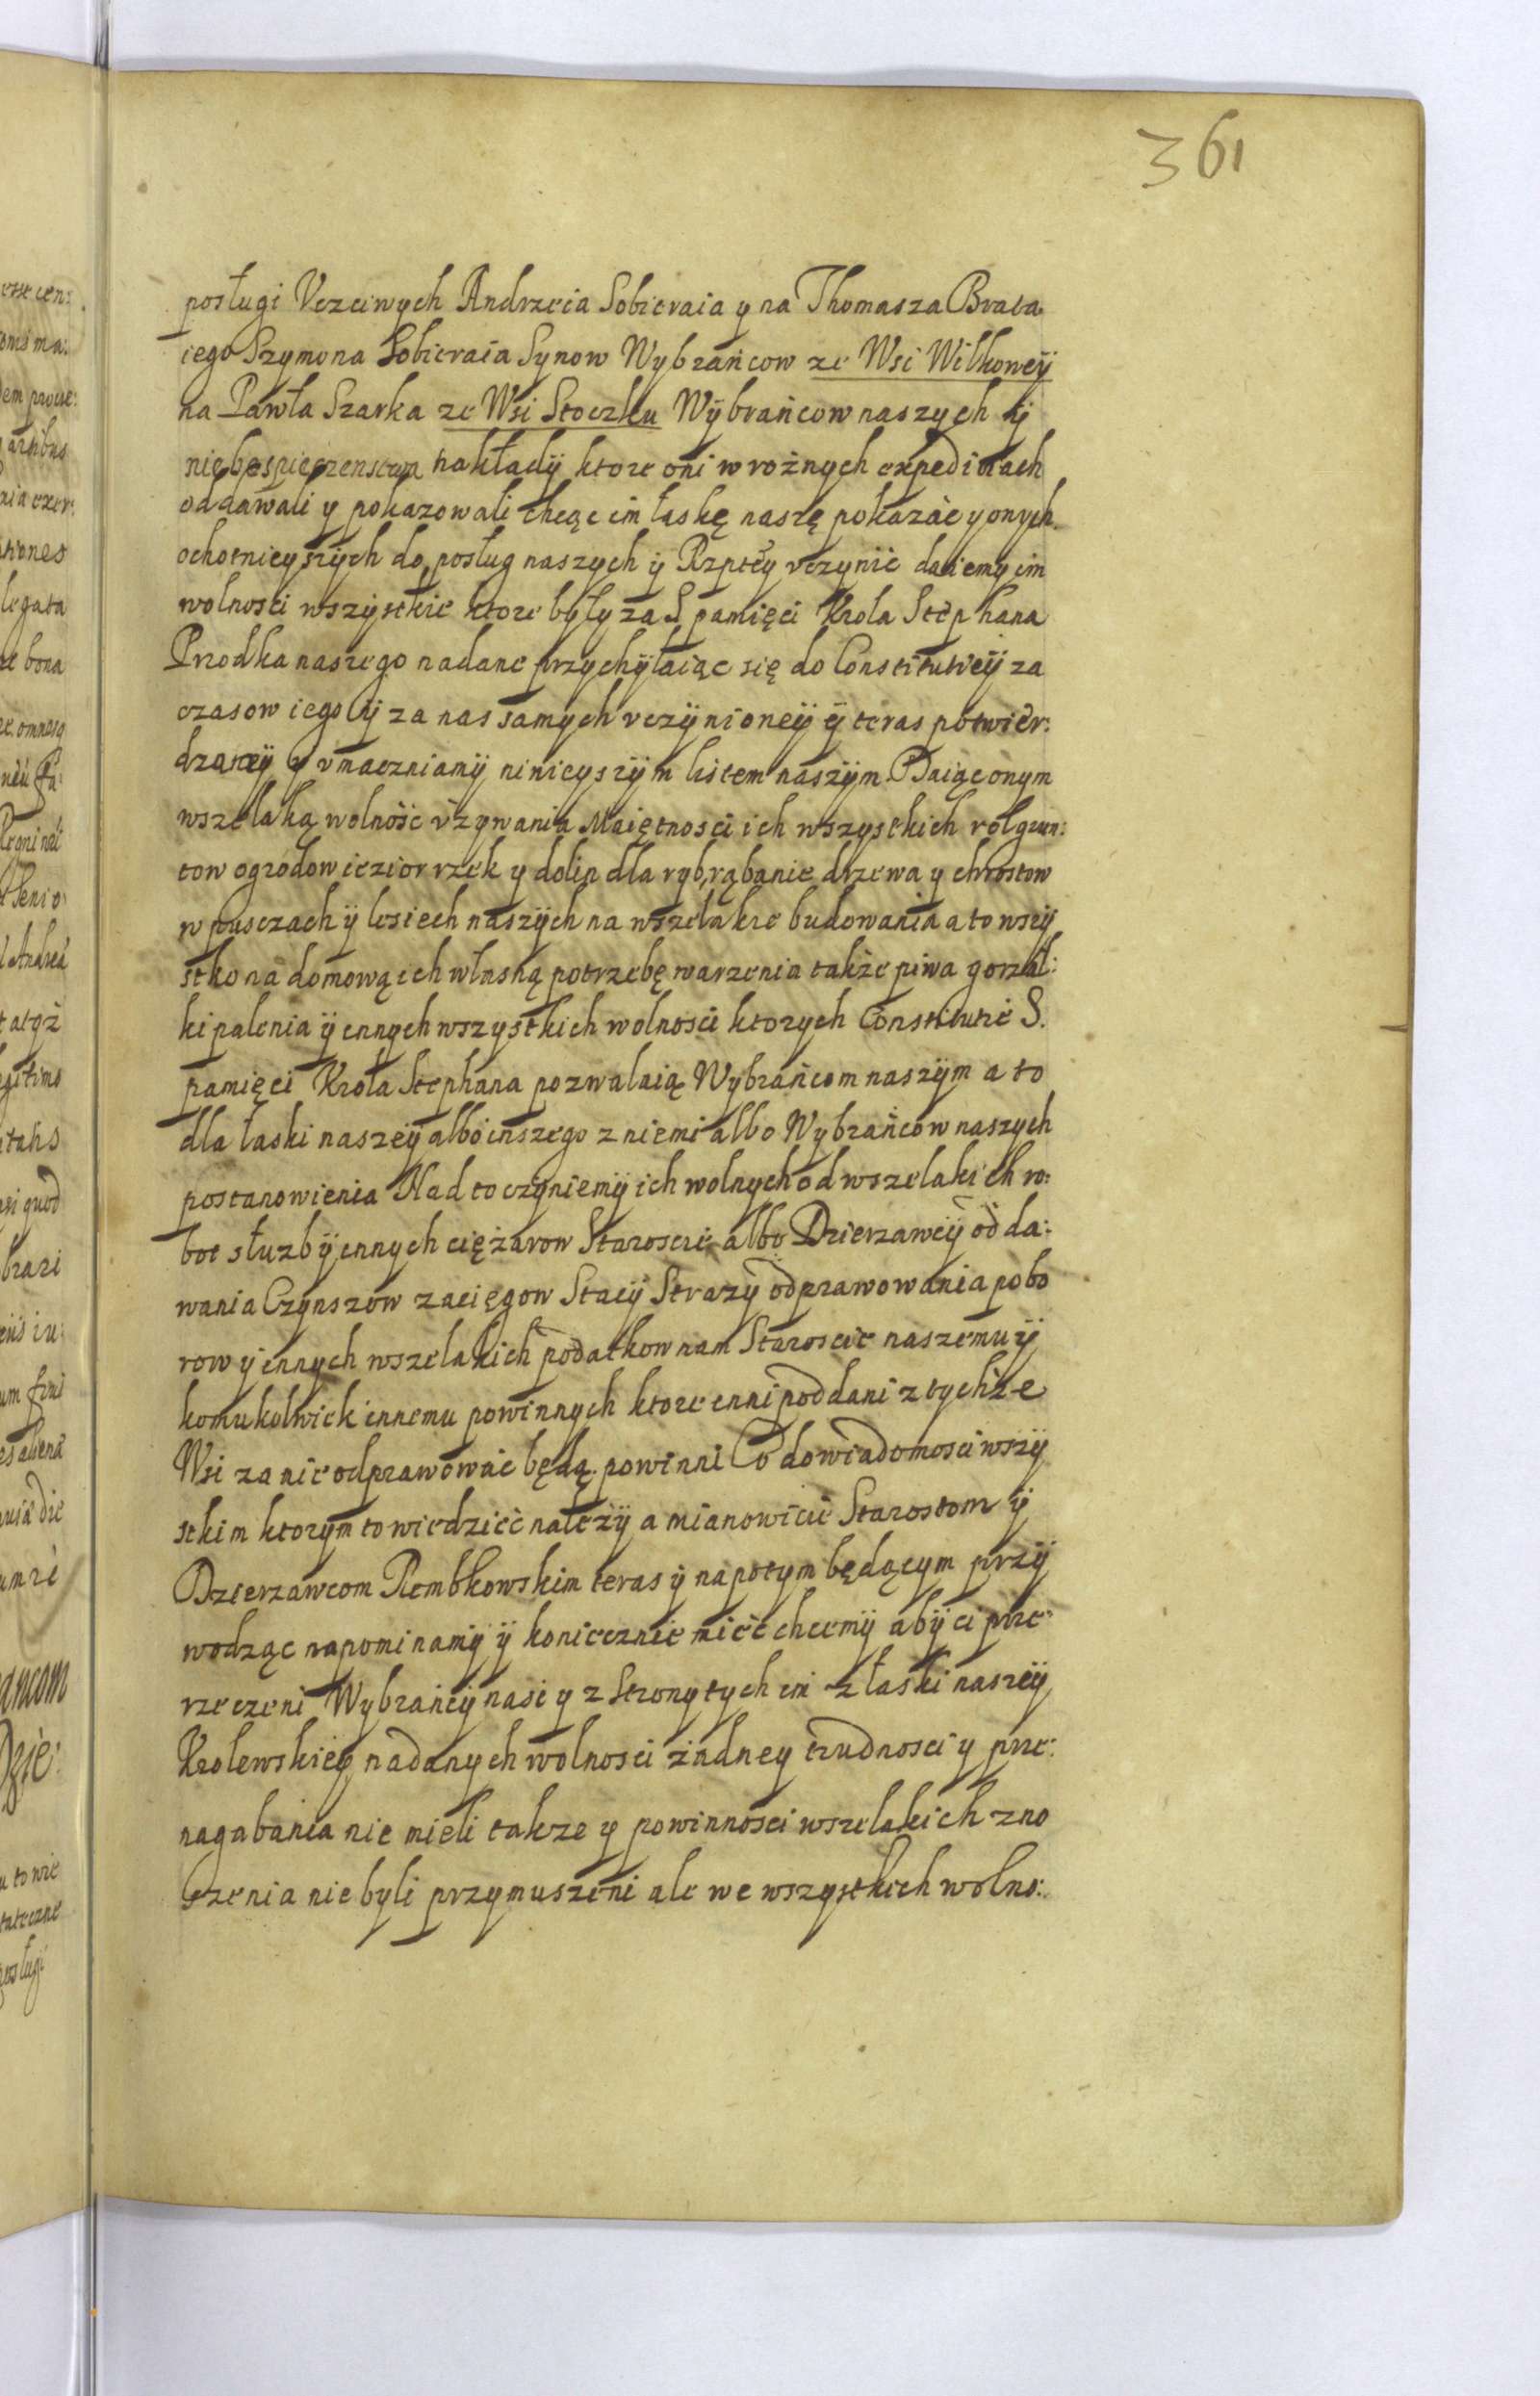 361
posługi Vczciwych Andrzeia Sobieraia y na Thomasza Brata
iego Szymona Sobieraia Synow Wybrańcow ze Wsi Wilkoweÿ
na Pawła Szarka ze Wsi Stoczku Wÿbrańcow naszych ÿ
niebespieczenstwa nakładÿ ktore oni w rożnych expeditiach
oddawali y pokazowali chcąc im łaskę naszę pokazać y onych
ochotnieyszÿch do posług naszych ÿ Rzptey vczynić daiemy im
wolnosci wszÿstkie ktore były za S pamięci Krola Stephana
Przodka naszego nadane przychÿlaiąc się do Constitutieÿ za
czasow iego ÿ za nas samych vczÿnioneÿ ÿ teras potwier:
dzaneÿ y vmaczniamÿ ninieyszÿm listem naszÿm Daiąc onym
wszelaką wolność vżywania Maiętnosci ich wszystkich rol grun:
tow ogrodow iezior rzek y dolin dla ryb, rąbanie drzewa y chrostow
w pusczach ÿ lesiech naszÿch na wszelakie budowania a to wszÿ
stko na domową ich własną potrzebę warzenia także piwa gorzał:
ki palenia ÿ ennych wszystkich wolnosci ktorych Constitutie S.
pamięci Krola Stephana pozwalaią Wybrańcom naszÿm a to
dla łaski naszeÿ albo inszego z niemi albo Wybrańcow naszych
postanowienia Nad to czÿniemÿ ich wolnych od wszelakich ro:
bot słuzb ÿ ennych ciężarow Staroscie albo Dzierzawcÿ odda:
wania Czynszow zaciągow Stacÿ Strazÿ odprawowania pobo
row ÿ ennych wszelakich podatkow nam Staroscie naszemu ÿ
komukolwiek innemu powinnych ktore enni poddani z tychże
Wsi zanie odprawować będą powinni Co do wiadomosci wszÿ
stkim ktorym to wiedzieć należÿ a mianowicie Starostom ÿ
Dzierzawcom Rembkowskim teras ÿ napotym będącym przÿ
wodząc napominamÿ ÿ koniecznie mieć chcemÿ abÿ ci prze
rzeczeni Wybrańcÿ nasi y z Strony tych im z łaski naszeÿ
Krolewskiey nadanych wolnosci żadney trudnosci y prze:
nagabania nie mieli takze y powinnosci wszelakich zno
szenia nie byli przymuszeni ale we wszystkich wolno: